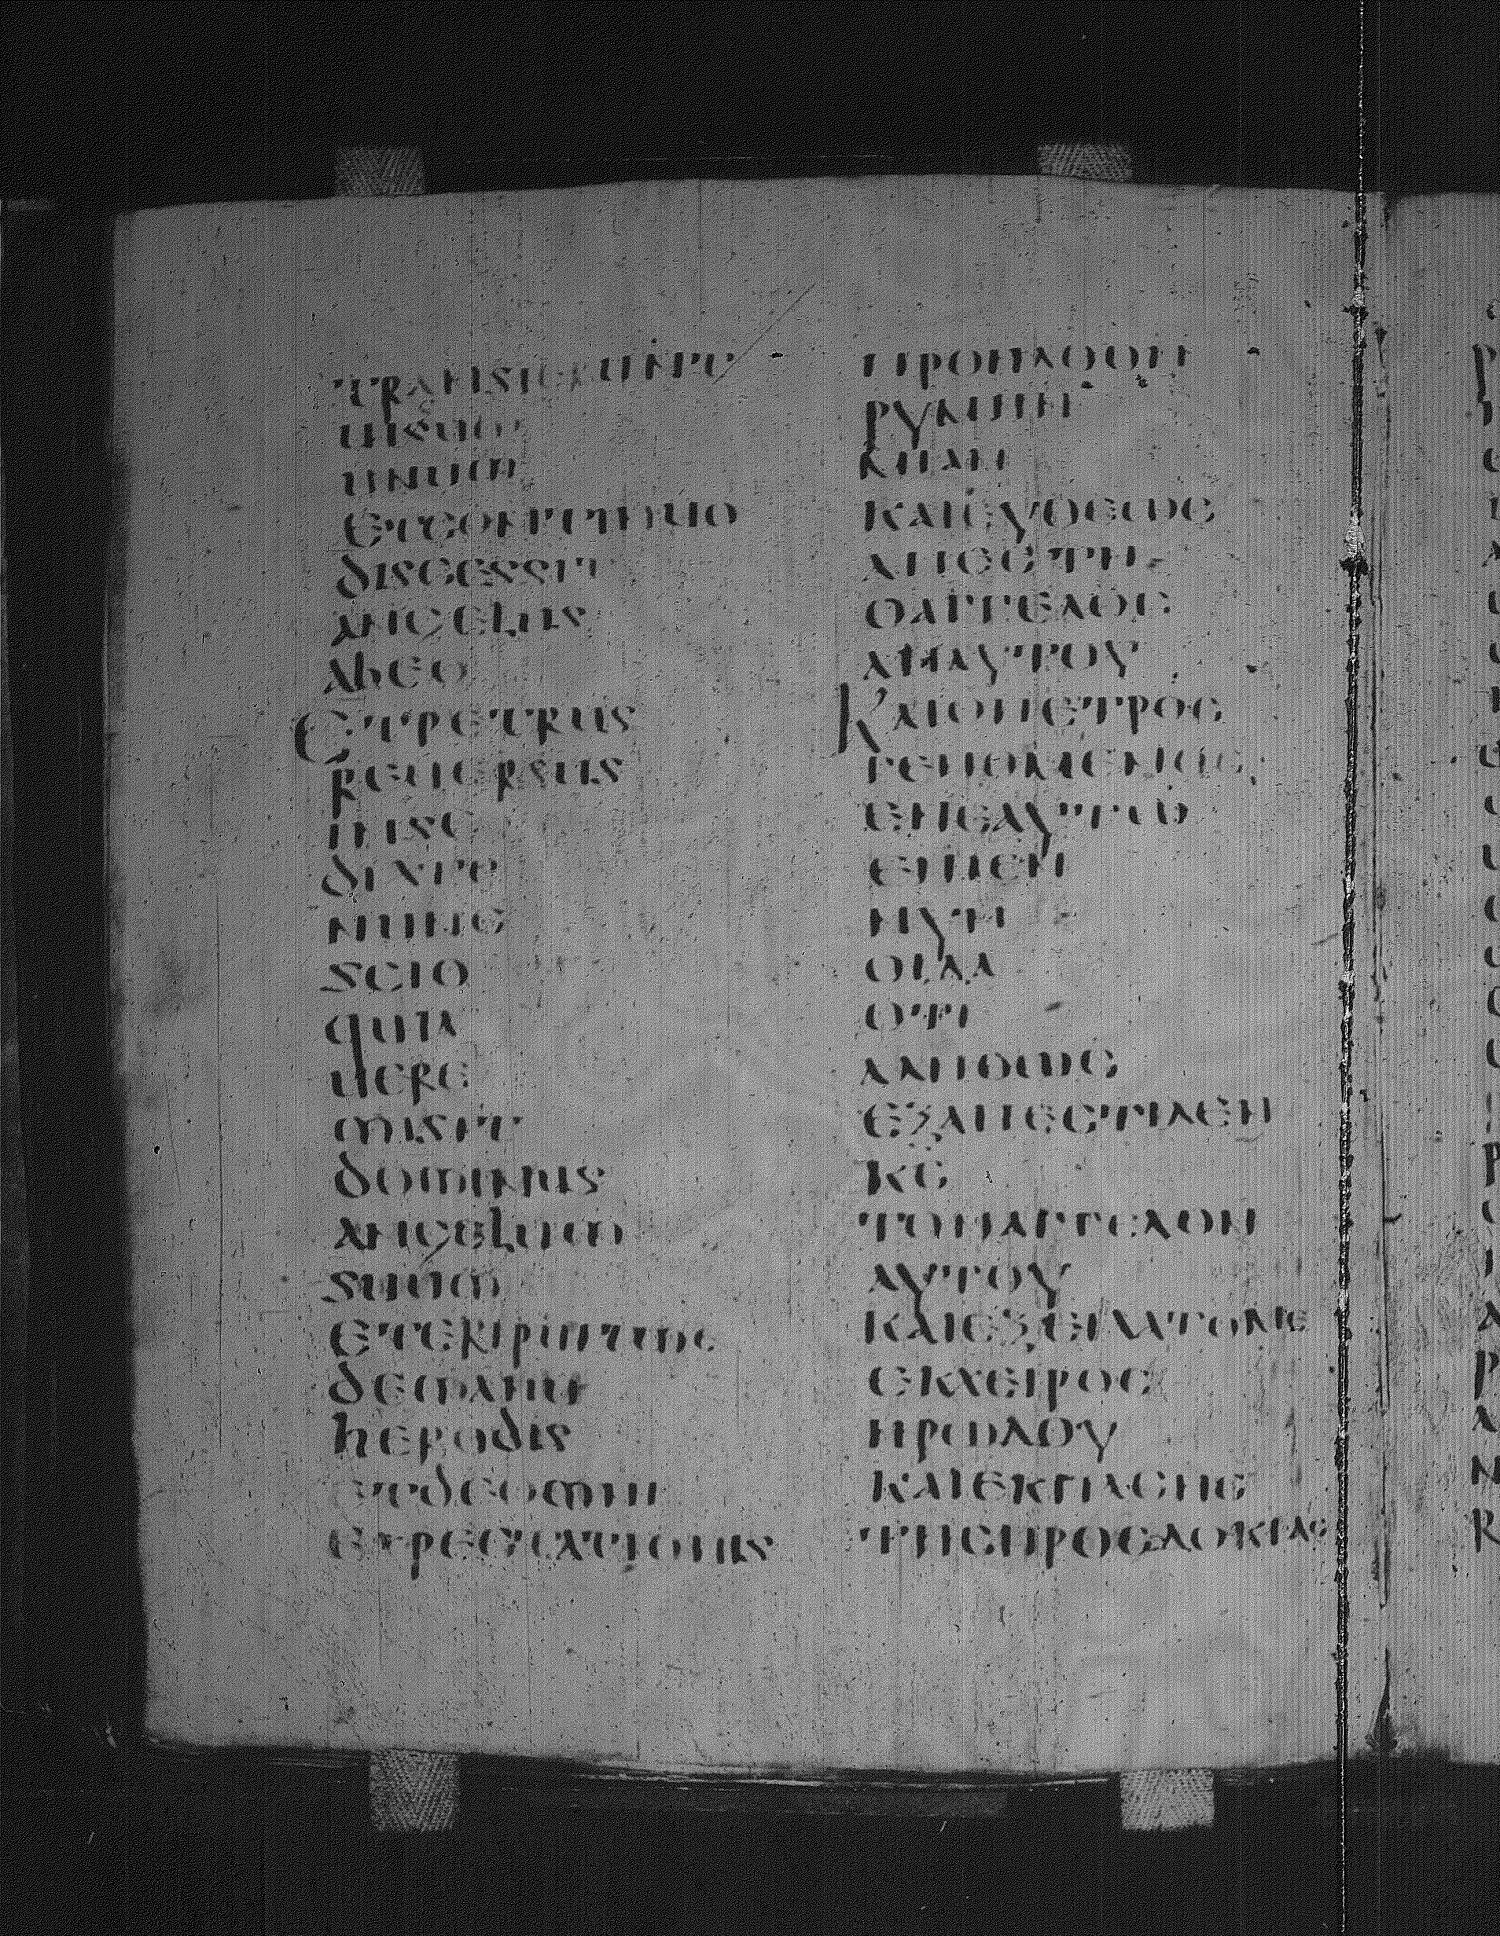 transierunt
uisum
unum
etcontinuo
discessit
angelus
abeo
Etpetrus
reuersus
inse
dixit
nunc
scio
quia
uere
misit
dominus
angelum
suum
eteripuitme
demanu
herodis
etdeomni
expectationis
προηλθον
ρυμην
μιαν
καιευθεωσ
απεστη
οαγγελοσ
απαυτου
Καιοπετροσ
γενομενοσ
ενεαυτω
ειπεν
νυν
οιδα
οτι
αληθωσ
εξαπεστιλεν
κσ
τοναγγελον
αυτου
καιεξειλατομε
εκχειροσ
ηρωδου
καιεκπασησ
τησπροσδοκιασ